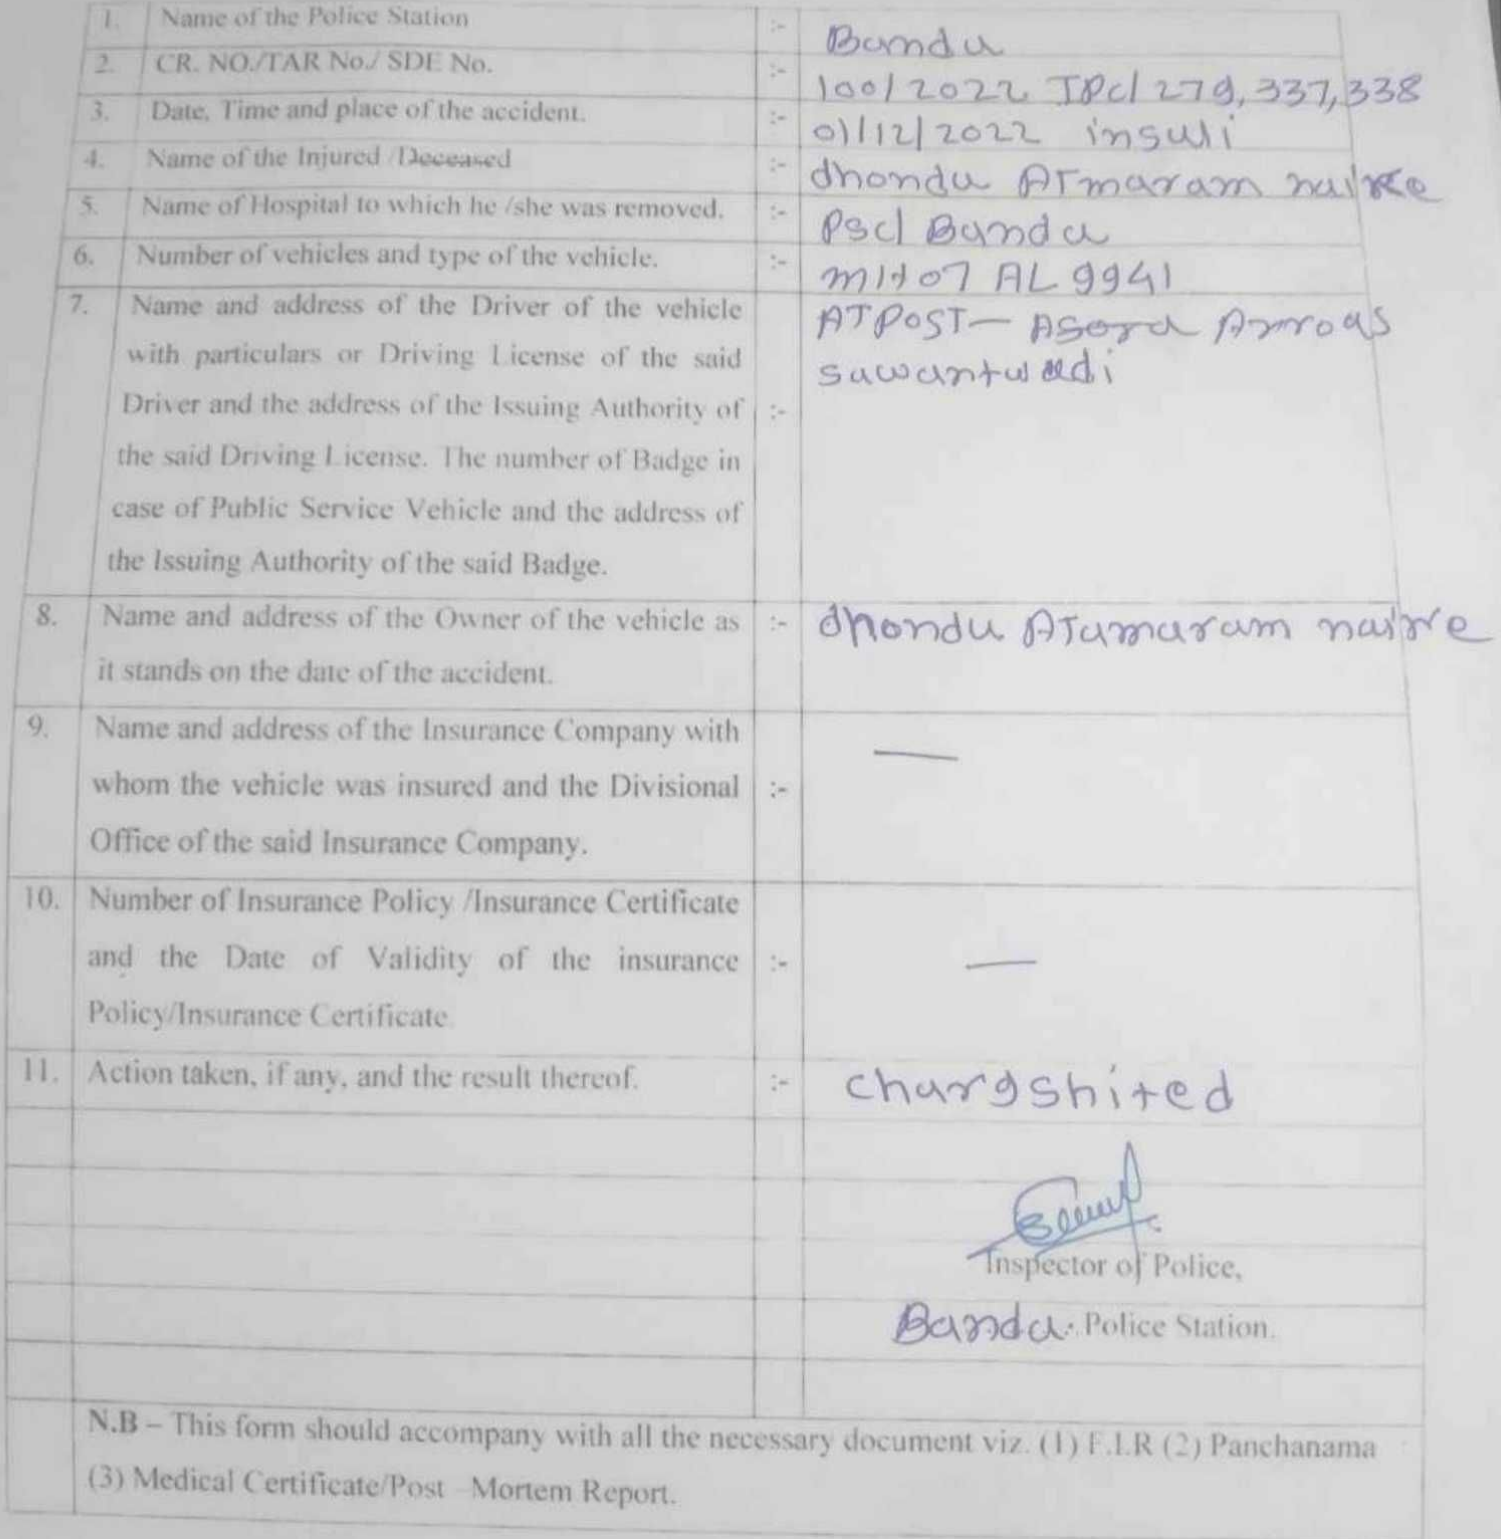 1. Name of the Police Station :- Banda
2. CR. NO./TAR No./ SDE No. :- 100/2022 IPC/ 279, 337, 338
3. Date, Time and place of the accident. :- 01/12/2022 insuli
4. Name of the Injured /Deceased :- dhondu ATmaram naike
5. Name of Hospital to which he /she was removed. :- Psc/ Banda
6. Number of vehicles and type of the vehicle. :- MH07 AL 9941
7. Name and address of the Driver of the vehicle ATPOST— Asora Arroas
with particulars or Driving License of the said sawantwadi
Driver and the address of the Issuing Authority of :-
the said Driving License. The number of Badge in
case of Public Service Vehicle and the address of
the Issuing Authority of the said Badge.
8. Name and address of the Owner of the vehicle as :- dhondu ATamaram naike
it stands on the date of the accident.
9. Name and address of the Insurance Company with —
whom the vehicle was insured and the Divisional :-
Office of the said Insurance Company.
10. Number of Insurance Policy /Insurance Certificate
and the Date of Validity of the insurance :- —
Policy/Insurance Certificate
11. Action taken, if any, and the result thereof. :- chargshited
Inspector of Police,
Banda. Police Station.
N.B – This form should accompany with all the necessary document viz. (1) F.I.R (2) Panchanama
(3) Medical Certificate/Post –Mortem Report.